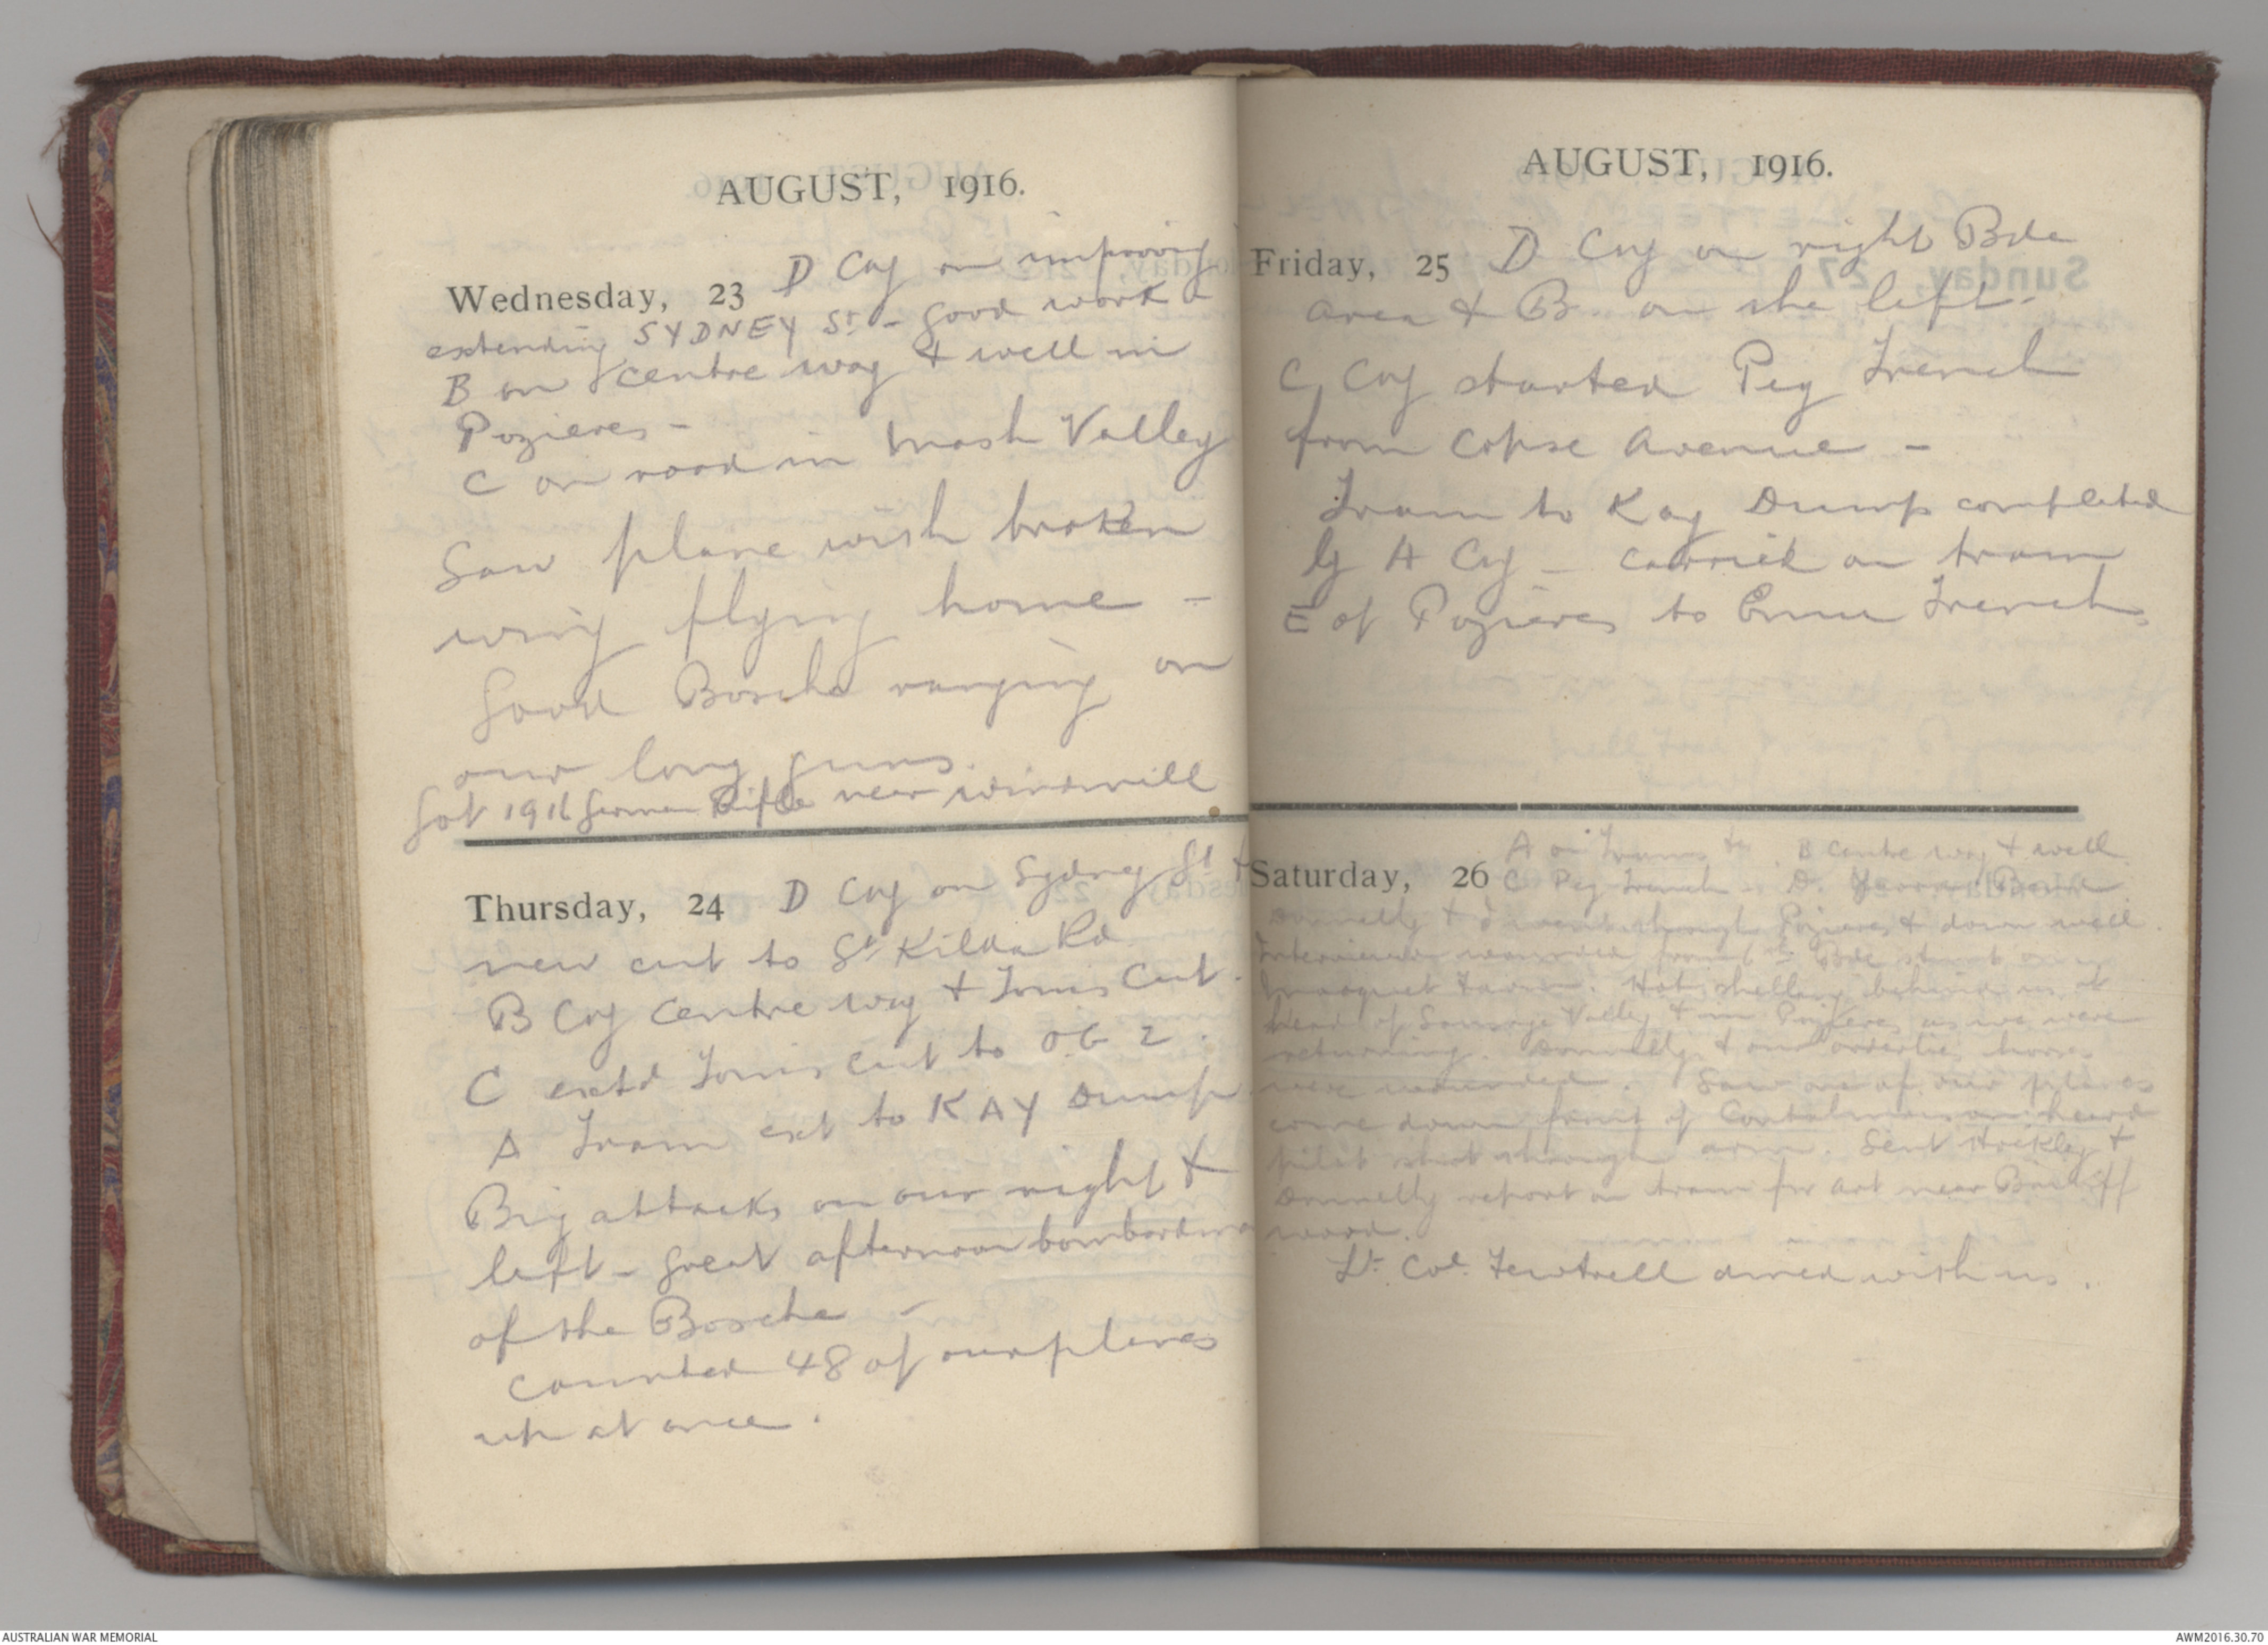 AUGUST, 1916.
Wednesday, 23 D Coy on improving
extending SYDNEY St - Good work
B on Centre way & well in
Pozieres -
C on road in Mash Valley
Saw plane with broken
wing flying home -
Good Bosche ranging on
our long guns.
Got 1916 German Rifle near windmill
Thursday, 24 D Coy on Sydney St &
new cut to St Kilda Rd
B Coy Centre way & Toms Cut.
C extd Toms Cut to OG 2.
A Tram ext to KAY Dump
Big attacks on our right &
left - great afternoon bombardm
of the Bosche -
Counted 48 of our planes
up at once.
AUGUST, 1916.
Friday, 25 D Coy on right Bde
area & B. on the left.
C Coy started Peg Trench
from Copse Avenue -
Tram to Kay Dump completed
by A Coy - carried on tram
E of Pozieres to Emu Trench
Saturday, 26 A on Trams B Centre way & well
C Peg Trench - D.
Donnelly & I went through Pozieres & down well.
Interviewed wounded from 6th Bde stunt on
Mouquet Farm. Hot shelling behind us at
head of Sausage Valley & in Pozieres as we were
returning. Donnelly & our orderlies horses
were wounded. Saw one of our planes
come down front of Contalmaison heard
pilot shot through arm. Sent &
Donnelly report on tram for art near Bailiff
wood.
Lt. Col. Fewtrell dined with us.
AUSTRALIAN WAR MEMORIAL
AWM2016.30.70